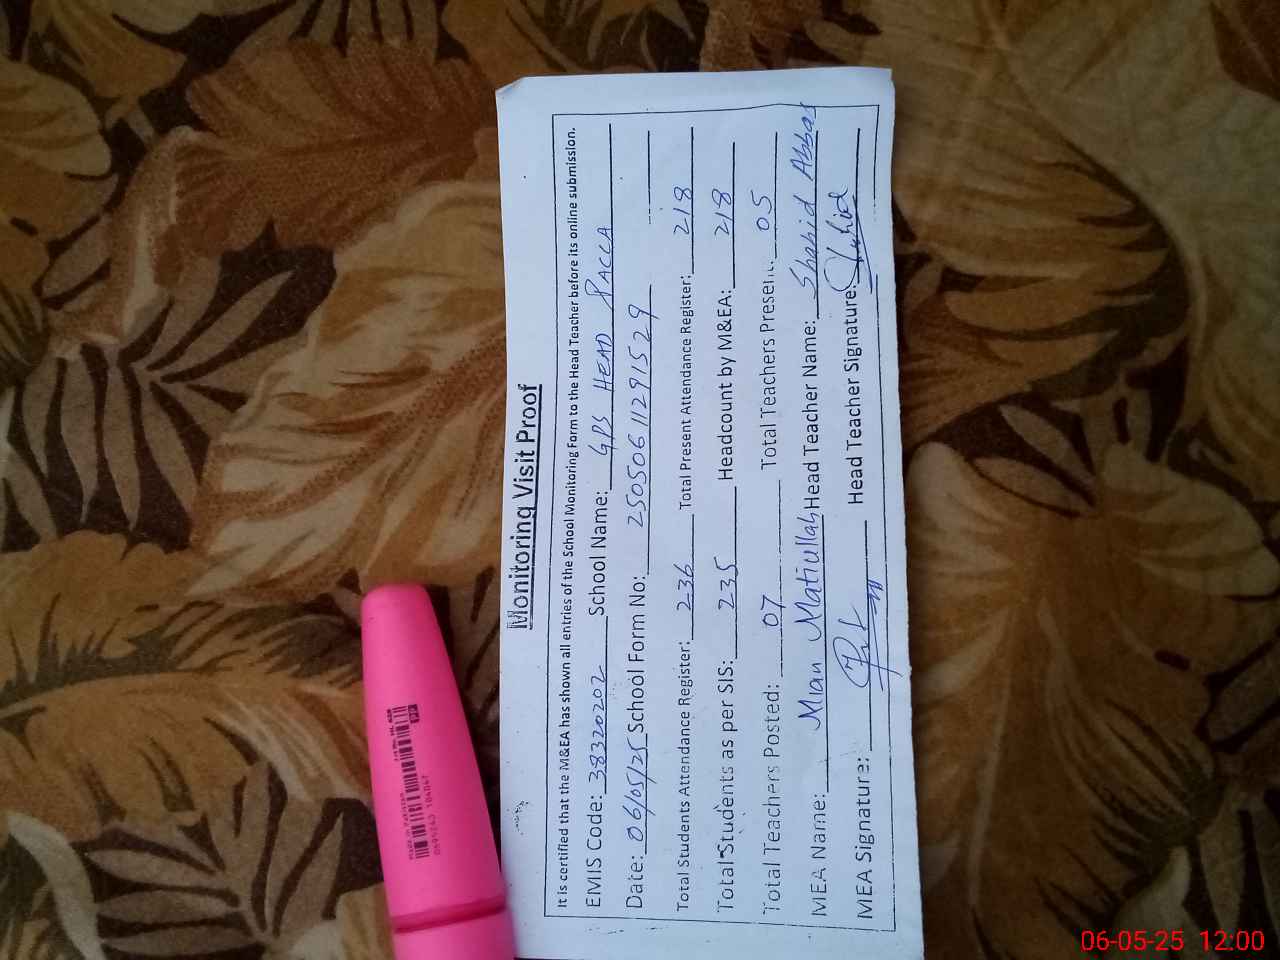 Monitoring Visit Proof
It is certified that the M&EA has shown all entries of the School Monitoring Form to the Head Teacher before its online submission.
EMIS Code: 38320202 School Name: GPS HEAD PACCA
Date: 06/05/25 School Form No: 25050611291529
Total Students Attendance Register: 236 Total Present Attendance Register: 218
Total Students as per SIS: 235 Headcount by M&EA: 218
Total Teachers Posted: 07 Total Teachers Present: 05
MEA Name: Mian Matiullah Head Teacher Name: Shahid Abbas
MEA Signature: Head Teacher Signature: Shahid
Made in Pakistan
PP
06-05-25 12:00